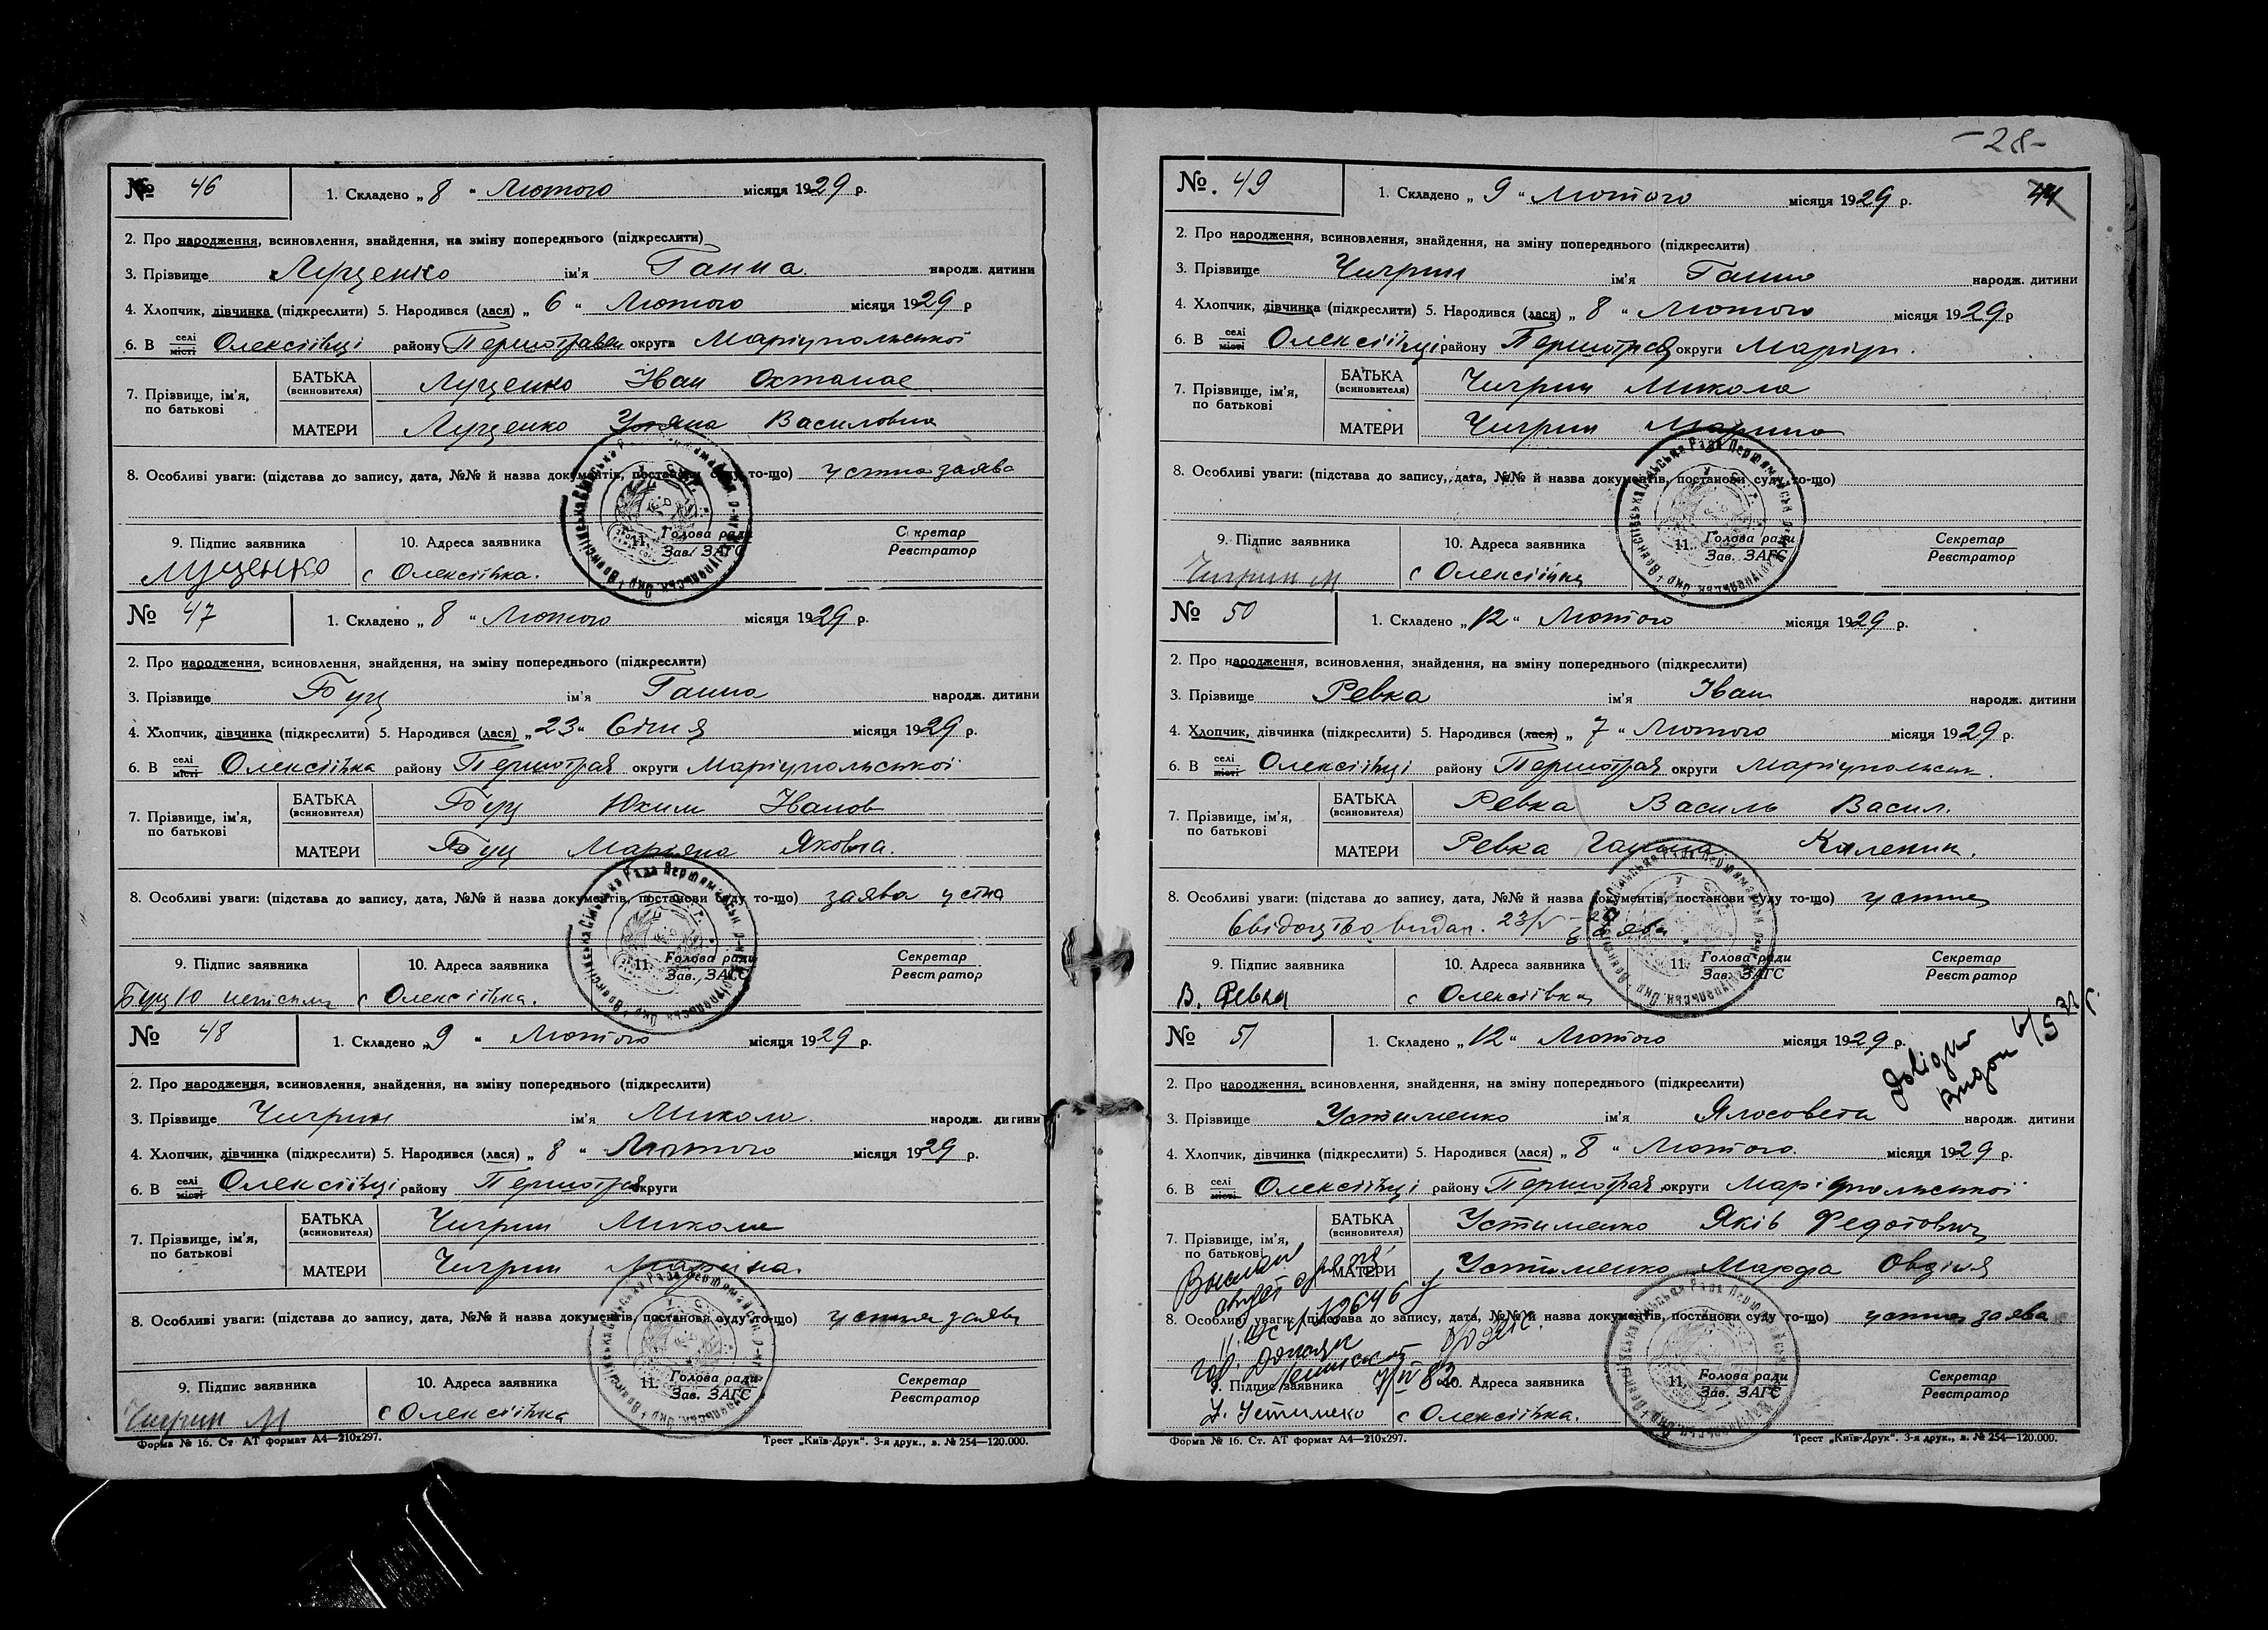 № 46
1. Складено „ 8 “ Лютого місяця 1929 р.
2. Про народження, всиновлення, знайдення, на зміну попереднього (підкреслити)
3. Прізвище Лущенко ім'я Ганна народж. дитини
4. Хлопчик, дівчинка (підкреслити) 5. Народився (лася) „ 6 “ Лютого місяця 1929 р
6. В селі місті Олексіївці району Першотравен округи Маріупольської
7. Прізвище, ім'я, по батькові
БАТЬКА (всиновителя) Лущенко Іван Остапов
МАТЕРИ Лущенко Уляна Василовна
8. Особливі уваги: (підстава до запису, дата, №№ й назва документів, постанови суду то-що) устна заява
9. Підпис заявника
10. Адреса заявника
11. Голова ради Зав. ЗАГС
Секретар Реєстратор
Лущенко
с Олексіївка.
№ 47
1. Складено „ 8 “ Лютого місяця 1929 р.
2. Про народження, всиновлення, знайдення, на зміну попереднього (підкреслити)
3. Прізвище Буц ім'я Ганна народж. дитини
4. Хлопчик, дівчинка (підкреслити) 5. Народився (лася) „ 23 “ Січня місяця 1929 р.
6. В селі місті Олексіївка району Першотрав округи Маріупольської
7. Прізвище, ім'я, по батькові
БАТЬКА (всиновителя) Буц Юхим Іванов
МАТЕРИ Буц Мар'яна Яковна.
8. Особливі уваги: (підстава до запису, дата, №№ й назва документів, постанови суду то-що) заява устна
9. Підпис заявника
10. Адреса заявника
11. Голова ради Зав. ЗАГС
Секретар Реєстратор
Буц Ю
с Олексіївка.
№ 48
1. Складено „ 9 “ Лютого місяця 1929 р.
2. Про народження, всиновлення, знайдення, на зміну попереднього (підкреслити)
3. Прізвище Чигрин ім'я Микола народж. дитини
4. Хлопчик, дівчинка (підкреслити) 5. Народився (лася) „ 8 “ Лютого місяця 1929 р.
6. В селі місті Олексіївці району Першотрав округи
7. Прізвище, ім'я, по батькові
БАТЬКА (всиновителя) Чигрин Микола
МАТЕРИ Чигрин Марина
8. Особливі уваги: (підстава до запису, дата, №№ й назва документів, постанови суду то-що) устна заява
9. Підпис заявника
10. Адреса заявника
11. Голова ради Зав. ЗАГС
Секретар Реєстратор
Чигрин М
с Олексіївка
Форма № 16. Ст. АТ формат А4—210х297.
Трест „Київ-Друк“. 3-я друк., в. № 254—120.000.
-28-
44
№. 49
1. Складено „ 9 “ Лютого місяця 1929 р.
2. Про народження, всиновлення, знайдення, на зміну попереднього (підкреслити)
3. Прізвище Чигрин ім'я Ганна народж. дитини
4. Хлопчик, дівчинка (підкреслити) 5. Народився (лася) „ 8 “ Лютого місяця 1929 р
6. В селі місті Олексіївці району Першотрав округи Маріуп.
7. Прізвище, ім'я, по батькові
БАТЬКА (всиновителя) Чигрин Микола
МАТЕРИ Чигрин Марина
8. Особливі уваги: (підстава до запису, дата, №№ й назва документів, постанови суду то-що)
9. Підпис заявника
10. Адреса заявника
11. Голова ради Зав. ЗАГС
Секретар Реєстратор
Чигрин М
с Олексіївка
№ 50
1. Складено „ 12 “ Лютого місяця 1929 р.
2. Про народження, всиновлення, знайдення, на зміну попереднього (підкреслити)
3. Прізвище Ревка ім'я Іван народж. дитини
4. Хлопчик, дівчинка (підкреслити) 5. Народився (лася) „ 7 “ Лютого місяця 1929 р.
6. В селі місті Олексіївці району Першотрав округи Маріупольськ.
7. Прізвище, ім'я, по батькові
БАТЬКА (всиновителя) Ревка Василь Васил.
МАТЕРИ Ревка Ганна Каленик.
8. Особливі уваги: (підстава до запису, дата, №№ й назва документів, постанови суду то-що) устна
Свідоцтво видан. 23/V заява
9. Підпис заявника
10. Адреса заявника
11. Голова ради Зав. ЗАГС
Секретар Реєстратор
В. Ревка
с Олексіївка
№ 51
1. Складено „ 12 “ Лютого місяця 1929 р.
2. Про народження, всиновлення, знайдення, на зміну попереднього (підкреслити)
3. Прізвище Устименко ім'я Ялосовета народж. дитини
4. Хлопчик, дівчинка (підкреслити) 5. Народився (лася) „ 8 “ Лютого. місяця 1929 р.
6. В селі місті Олексіївці району Першотрав округи Маріупольської
7. Прізвище, ім'я, по батькові
БАТЬКА (всиновителя) Устименко Яків Федотович
МАТЕРИ Устименко Марфа Овдіів
8. Особливі уваги: (підстава до запису, дата, №№ й назва документів, постанови суду то-що) устна заява
9. Підпис заявника
10. Адреса заявника
11. Голова ради Зав. ЗАГС
Секретар Реєстратор
Я. Устимеко
с Олексіївка.
Форма № 16. Ст. АТ формат А4—210х297.
Трест „Київ-Друк“. 3-я друк., в. № 254—120.000.